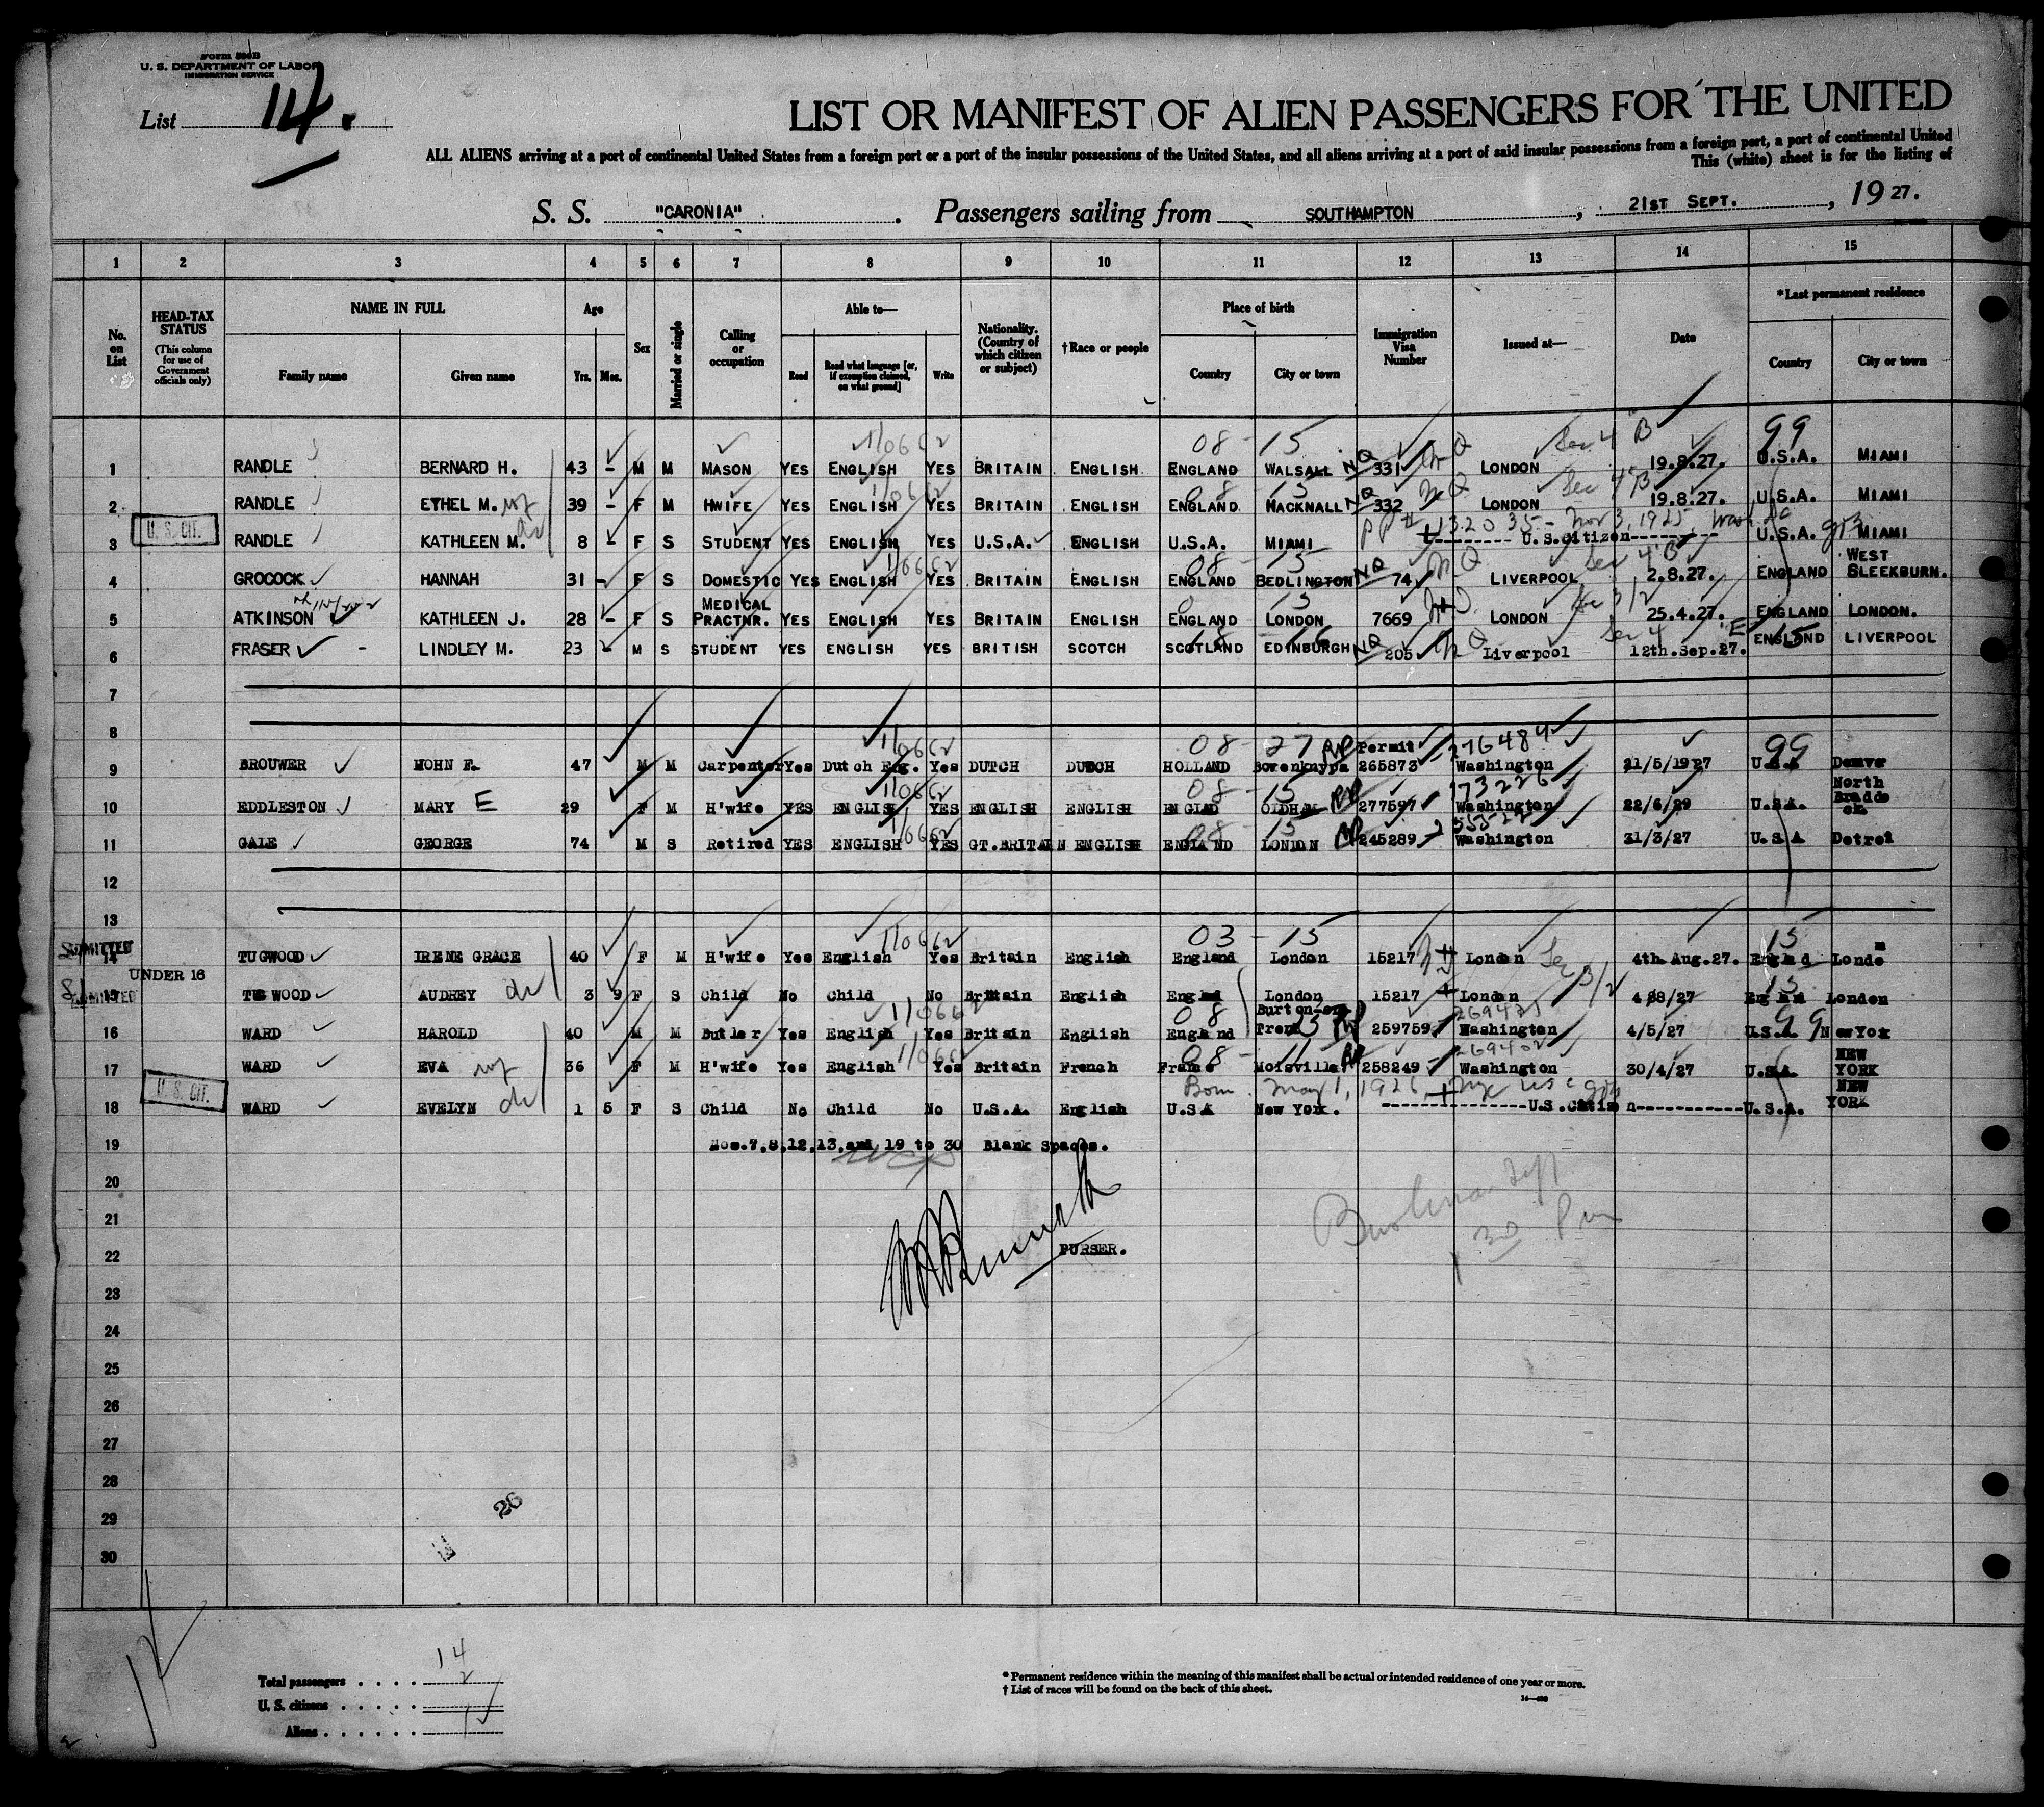 Form 500B
U. S. DEPARTMENT OF LABOR
IMMIGRATION SERVICE
List 14.
LIST OR MANIFEST OF ALIEN PASSENGERS FOR THE UNITED
ALL ALIENS arriving at a port of continental United States from a foreign port or a port of the insular possessions of the United States, and all aliens arriving at a port of said insular possessions from a foreign port, a port of continental United
This (white) sheet is for the listing of
S. S. "CARONIA". Passengers sailing from SOUTHAMPTON, 21ST SEPT., 1927.
1 2 3 4 5 6 7 8 9 10 11 12 13 14 15
No. on List
HEAD-TAX STATUS (This column for use of Government officials only)
NAME IN FULL Family name Given name
Age Yrs. Mos.
Sex
Married or single
Calling or occupation
Able to— Read Read what language [or, if exemption claimed, on what ground] Write
Nationality. (Country of which citizen or subject)
†Race or people
Place of birth Country City or town
Immigration Visa Number
Issued at—
Date
*Last permanent residence Country City or town
08 - 15 Sec 4 B 99
1 RANDLE BERNARD H. 43 - M M MASON YES ENGLISH YES BRITAIN ENGLISH ENGLAND WALSALL NQ 331 LONDON 19.8.27. U.S.A. MIAMI
08 15 Sec 4 B
2 RANDLE ETHEL M. wf 39 - F M HWIFE YES ENGLISH YES BRITAIN ENGLISH ENGLAND HACKNALL NQ 332 LONDON 19.8.27. U.S.A. MIAMI
PP# 132035 - Nov 3, 1925, Wash
U. S. CIT.
3 RANDLE KATHLEEN M. 8 - F S STUDENT YES ENGLISH YES U.S.A. ENGLISH U.S.A. MIAMI -------- U.S.Citizen--------- U.S.A. MIAMI
08 - 15 Sec 4 B
4 GROCOCK HANNAH 31 - F S DOMESTIC YES ENGLISH YES BRITAIN ENGLISH ENGLAND BEDLINGTON NQ 74 LIVERPOOL 2.8.27. ENGLAND WEST SLEEKBURN.
5 ATKINSON KATHLEEN J. 28 - F S MEDICAL PRACTNR. YES ENGLISH YES BRITAIN ENGLISH ENGLAND LONDON 7669 LONDON 25.4.27. ENGLAND LONDON.
6 FRASER - LINDLEY M. 23 - M S STUDENT YES ENGLISH YES BRITISH SCOTCH SCOTLAND EDINBURGH NQ 205 Liverpool 12th.Sep.27. ENGLAND LIVERPOOL
7
8
08 - 27 Permit 276484 99
9 BROUWER HOHN F. 47 M M Carpenter Yes Dutch Eng. Yes DUTCH DUTCH HOLLAND Bovenknype 265873 Washington 21/5/1927 U.S.A Denver
08 - 15 173226
10 EDDLESTON MARY E 29 F M H'wife YES ENGLISH YES ENGLISH ENGLISH ENGLAD OLDHAM 277597 Washington 22/6/29 U.S.A. North Braddock
08 - 15
11 GALE GEORGE 74 M S Retired YES ENGLISH YES GT.BRITAIN ENGLISH ENGLAND LONDON 245289 Washington 31/3/27 U.S.A Detroi
12
13
03 - 15 15
ADMITTED
14 TUGWOOD IRENE GRACE 40 F M H'wife Yes English Yes Britain English England London 15217 London 4th.Aug.27. England Londo n
UNDER 16
ADMITTED
15 TUGWOOD AUDREY 3 9 F S Child No Child No Britain English Englnd London 15217 London 4/8/27 England London
16 WARD HAROLD 40 M M Butler Yes English Yes Britain English England Burton-on-Trent 259759 Washington 4/5/27 U.S.A New York
17 WARD EVA wf 36 F M H'wife Yes English Yes Britain French France Moisville 258249 Washington 30/4/27 U.S.A. NEW YORK
Born May 1, 1926
U. S. CIT.
18 WARD EVELYN 1 5 F S Child No Child No U.S.A. English U.S.A New York. --------------U.S.Citizen------------U.S.A. NEW YORK
19 Nos.7,8,12,13,and 19 to 30 Blank Spaces.
20
21
22 PURSER.
23
24
25
26
27
28
29
30
26
1 30 Pm
Total passengers . . . . 14
U. S. citizens . . . . . 2
Aliens . . . . . .
* Permanent residence within the meaning of this manifest shall be actual or intended residence of one year or more.
† List of races will be found on the back of this sheet.